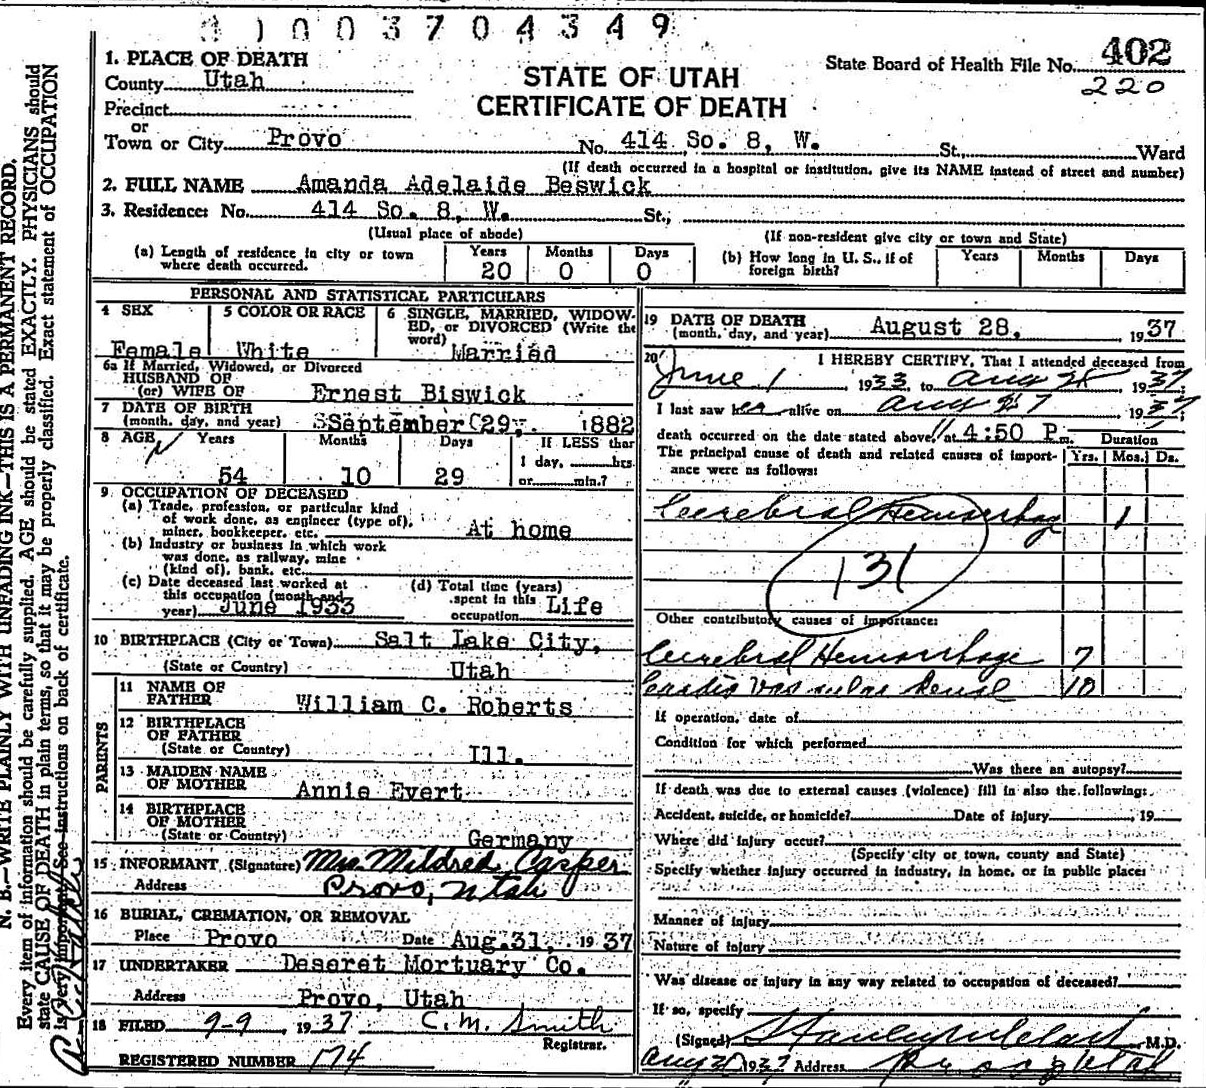 1003704349
1. PLACE OF DEATH
County Utah
STATE OF UTAH
CERTIFICATE OF DEATH
State Board of Health File No. 402
220
Precinct
or
Town or City Provo No. 414 So. 8, W. St., Ward
(If death occurred in a hospital or institution, give its NAME instead of street and number)
2. FULL NAME Amanda Adelaide Beswick
3. Residence: No. 414 So. 8, W. St.,
(Usual place of abode) (If non-resident give city or town and State)
(a) Length of residence in city or town where death occurred. Years 20 Months 0 Days 0
(b) How long in U. S., if of foreign birth? Years Months Days
PERSONAL AND STATISTICAL PARTICULARS
4 SEX Female
5 COLOR OR RACE White
6 SINGLE, MARRIED, WIDOWED, or DIVORCED (Write the word) Married
6a If Married, Widowed, or Divorced
HUSBAND OF
(or) WIFE OF Ernest Biswick
7 DATE OF BIRTH
(month, day, and year) SSeptember (29, 1882
8 AGE Years Months Days If LESS than
54 10 29 1 day, hrs.
or min.?
9 OCCUPATION OF DECEASED
(a) Trade, profession, or particular kind
of work done, as engineer (type of),
miner, bookkeeper, etc. At home
(b) Industry or business in which work
was done, as railway, mine
(kind of), bank, etc.
(c) Date deceased last worked at
this occupation (month and
year) June 1933
(d) Total time (years)
spent in this
occupation Life
10 BIRTHPLACE (City or Town) Salt Lake City,
(State or Country) Utah
PARENTS
11 NAME OF
FATHER William C. Roberts
12 BIRTHPLACE
OF FATHER
(State or Country) Ill.
13 MAIDEN NAME
OF MOTHER Annie Evert
14 BIRTHPLACE
OF MOTHER
(State or Country) Germany
15 INFORMANT (Signature) Mrs. Mildred Casper
Address Provo, Utah
16 BURIAL, CREMATION, OR REMOVAL
Place Provo Date Aug. 31, 1937
17 UNDERTAKER Deseret Mortuary Co.
Address Provo, Utah
18 FILED 9-9, 1937 C. M. Smith
Registrar.
REGISTERED NUMBER 174
19 DATE OF DEATH
(month, day, and year) August 28, 1937
20 I HEREBY CERTIFY, That I attended deceased from
June 1 1933 to Aug 28 1937
I last saw her alive on Aug 27 1937;
death occurred on the date stated above, at 4:50 P.m. Duration
The principal cause of death and related causes of importance were as follows: Yrs. Mos. Ds.
Cerebral Hemorrhage 1
131
Other contributory causes of importance:
Cerebral Hemorrhage 7
Cardio Vascular Renal 10
If operation, date of
Condition for which performed
Was there an autopsy?
If death was due to external causes (violence) fill in also the following:
Accident, suicide, or homicide? Date of injury 19
Where did injury occur?
(Specify city or town, county and State)
Specify whether injury occurred in industry, in home, or in public place:
Manner of injury
Nature of injury
Was disease or injury in any way related to occupation of deceased?
If so, specify
(Signed) M.D.
1937 Address Provo Utah
N. B.—WRITE PLAINLY WITH UNFADING INK—THIS IS A PERMANENT RECORD.
Every item of information should be carefully supplied. AGE should be stated EXACTLY. PHYSICIANS should
state CAUSE OF DEATH in plain terms, so that it may be properly classified. Exact statement of OCCUPATION
is very important. See instructions on back of certificate.